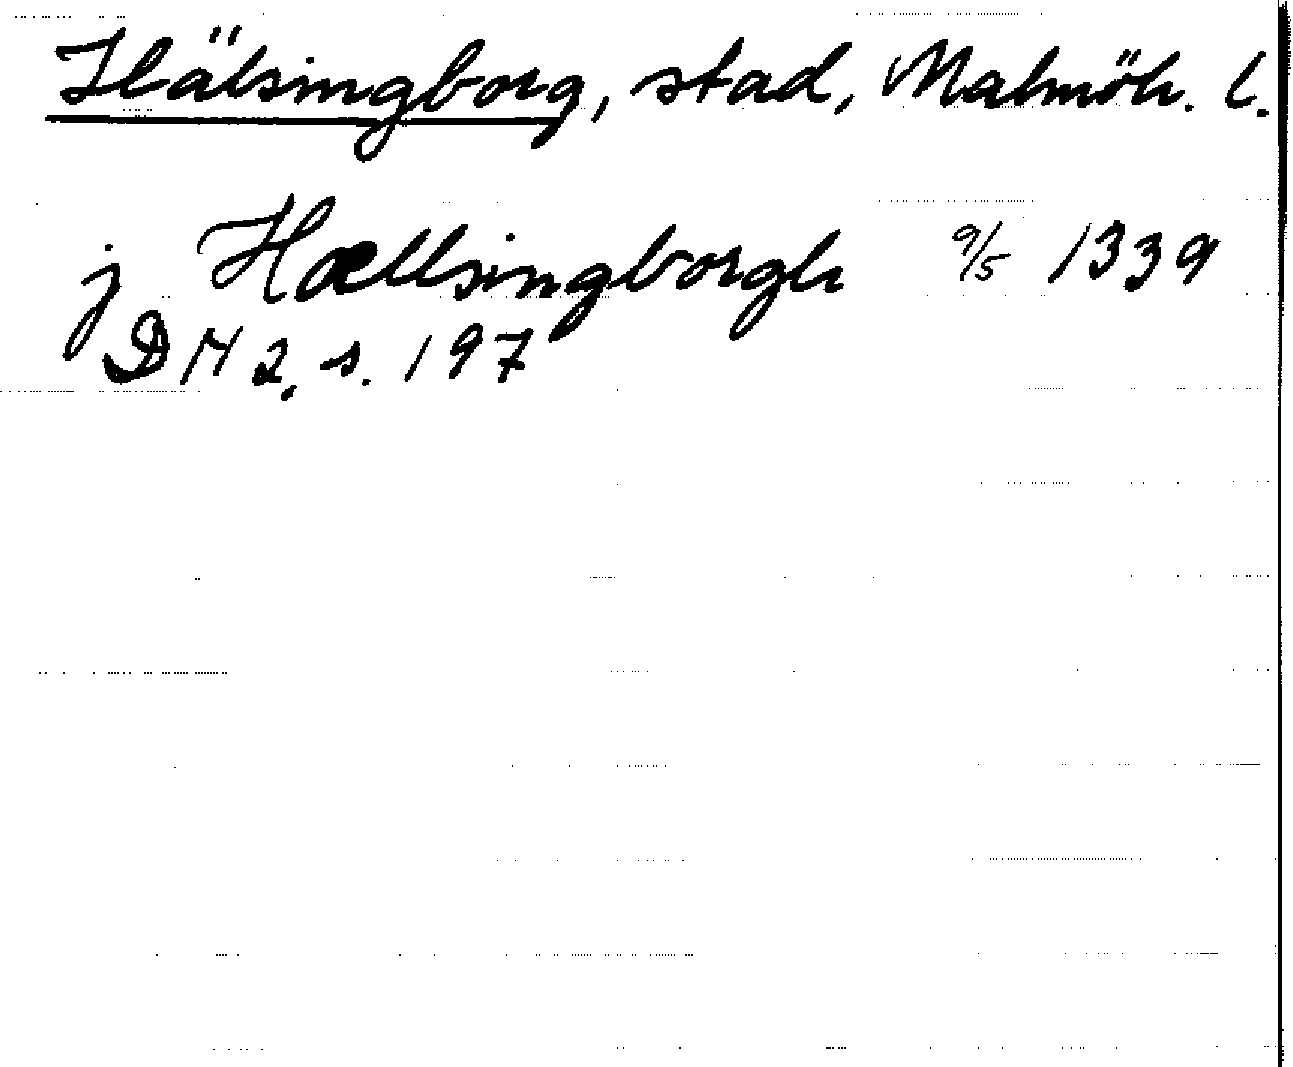 Hälsingborg, stad, Malmöh. l.
j Hællsingborgh 9/5 1339
DM 2, s. 197